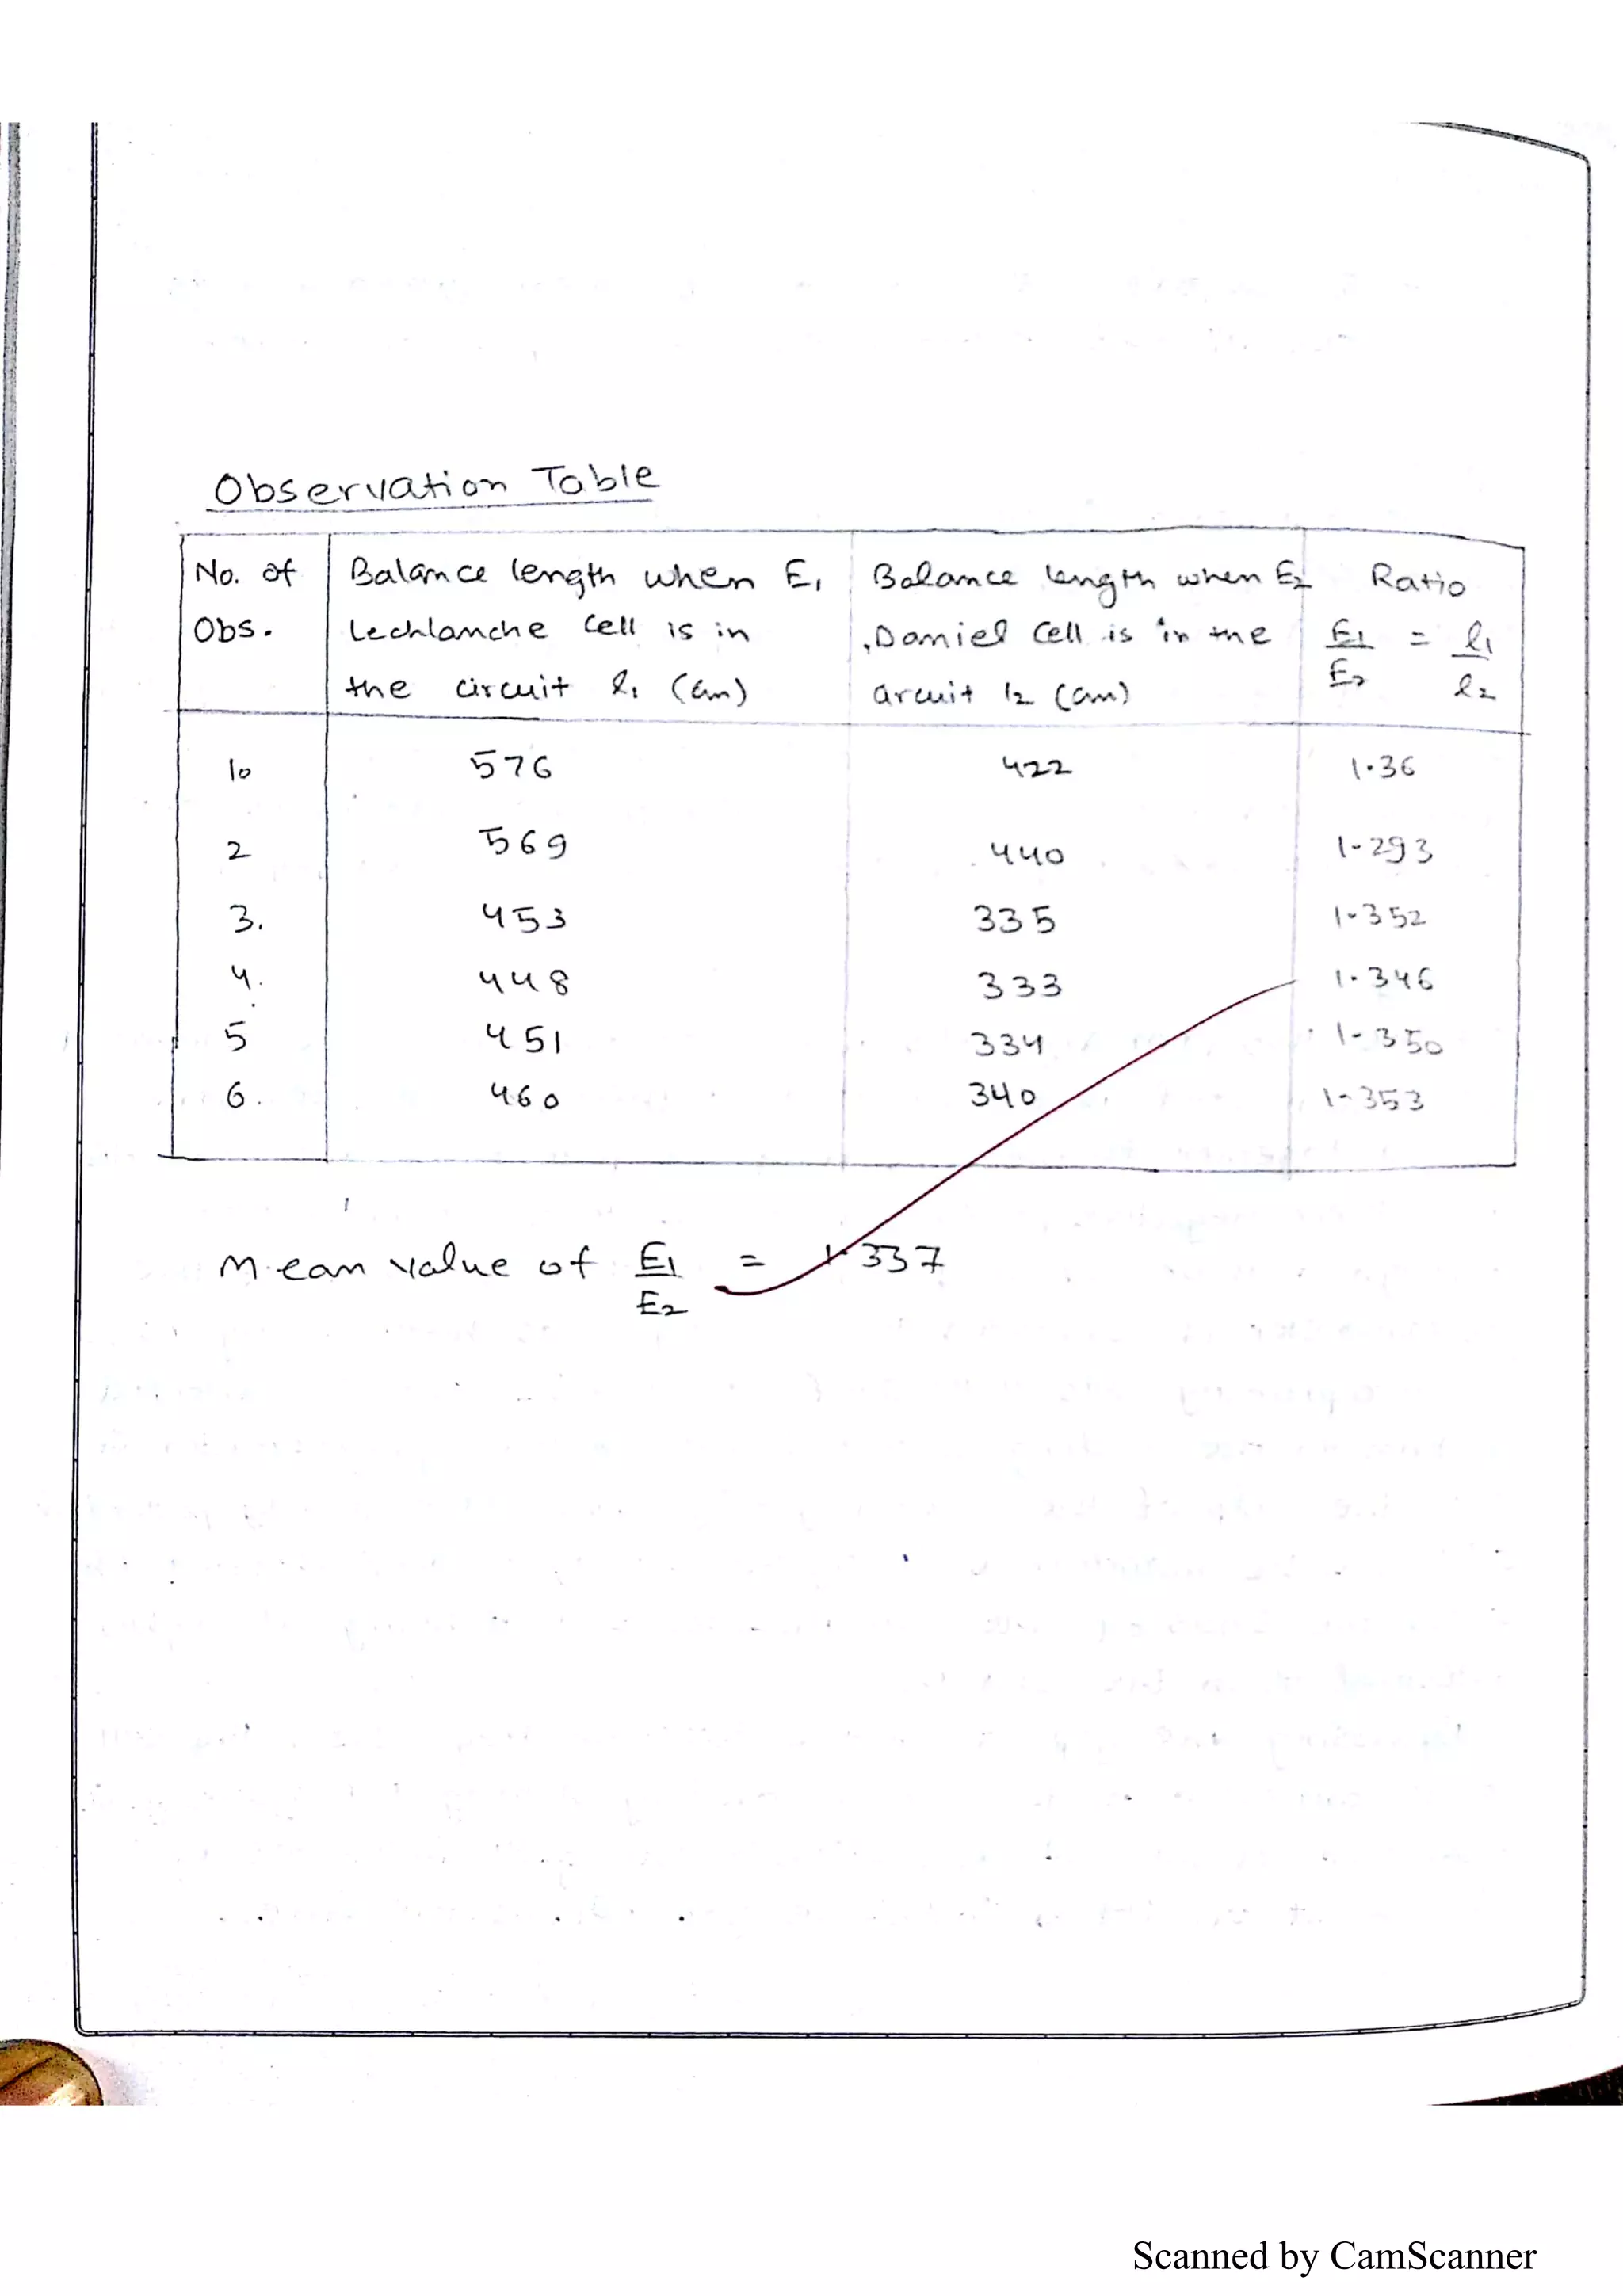 Observation Table
No. of Obs.
Balance length when E1 Lechlanche Cell is in the circuit l1 (cm)
Balance length when E2 Daniel Cell is in the circuit l2 (cm)
Ratio E1/E2 = l1/l2
10 576 422 1.36
2 569 440 1.293
3. 453 335 1.352
4. 448 333 1.346
5 451 334 1.350
6. 460 340 1.353
Mean value of E1/E2 = 1.337
Scanned by CamScanner